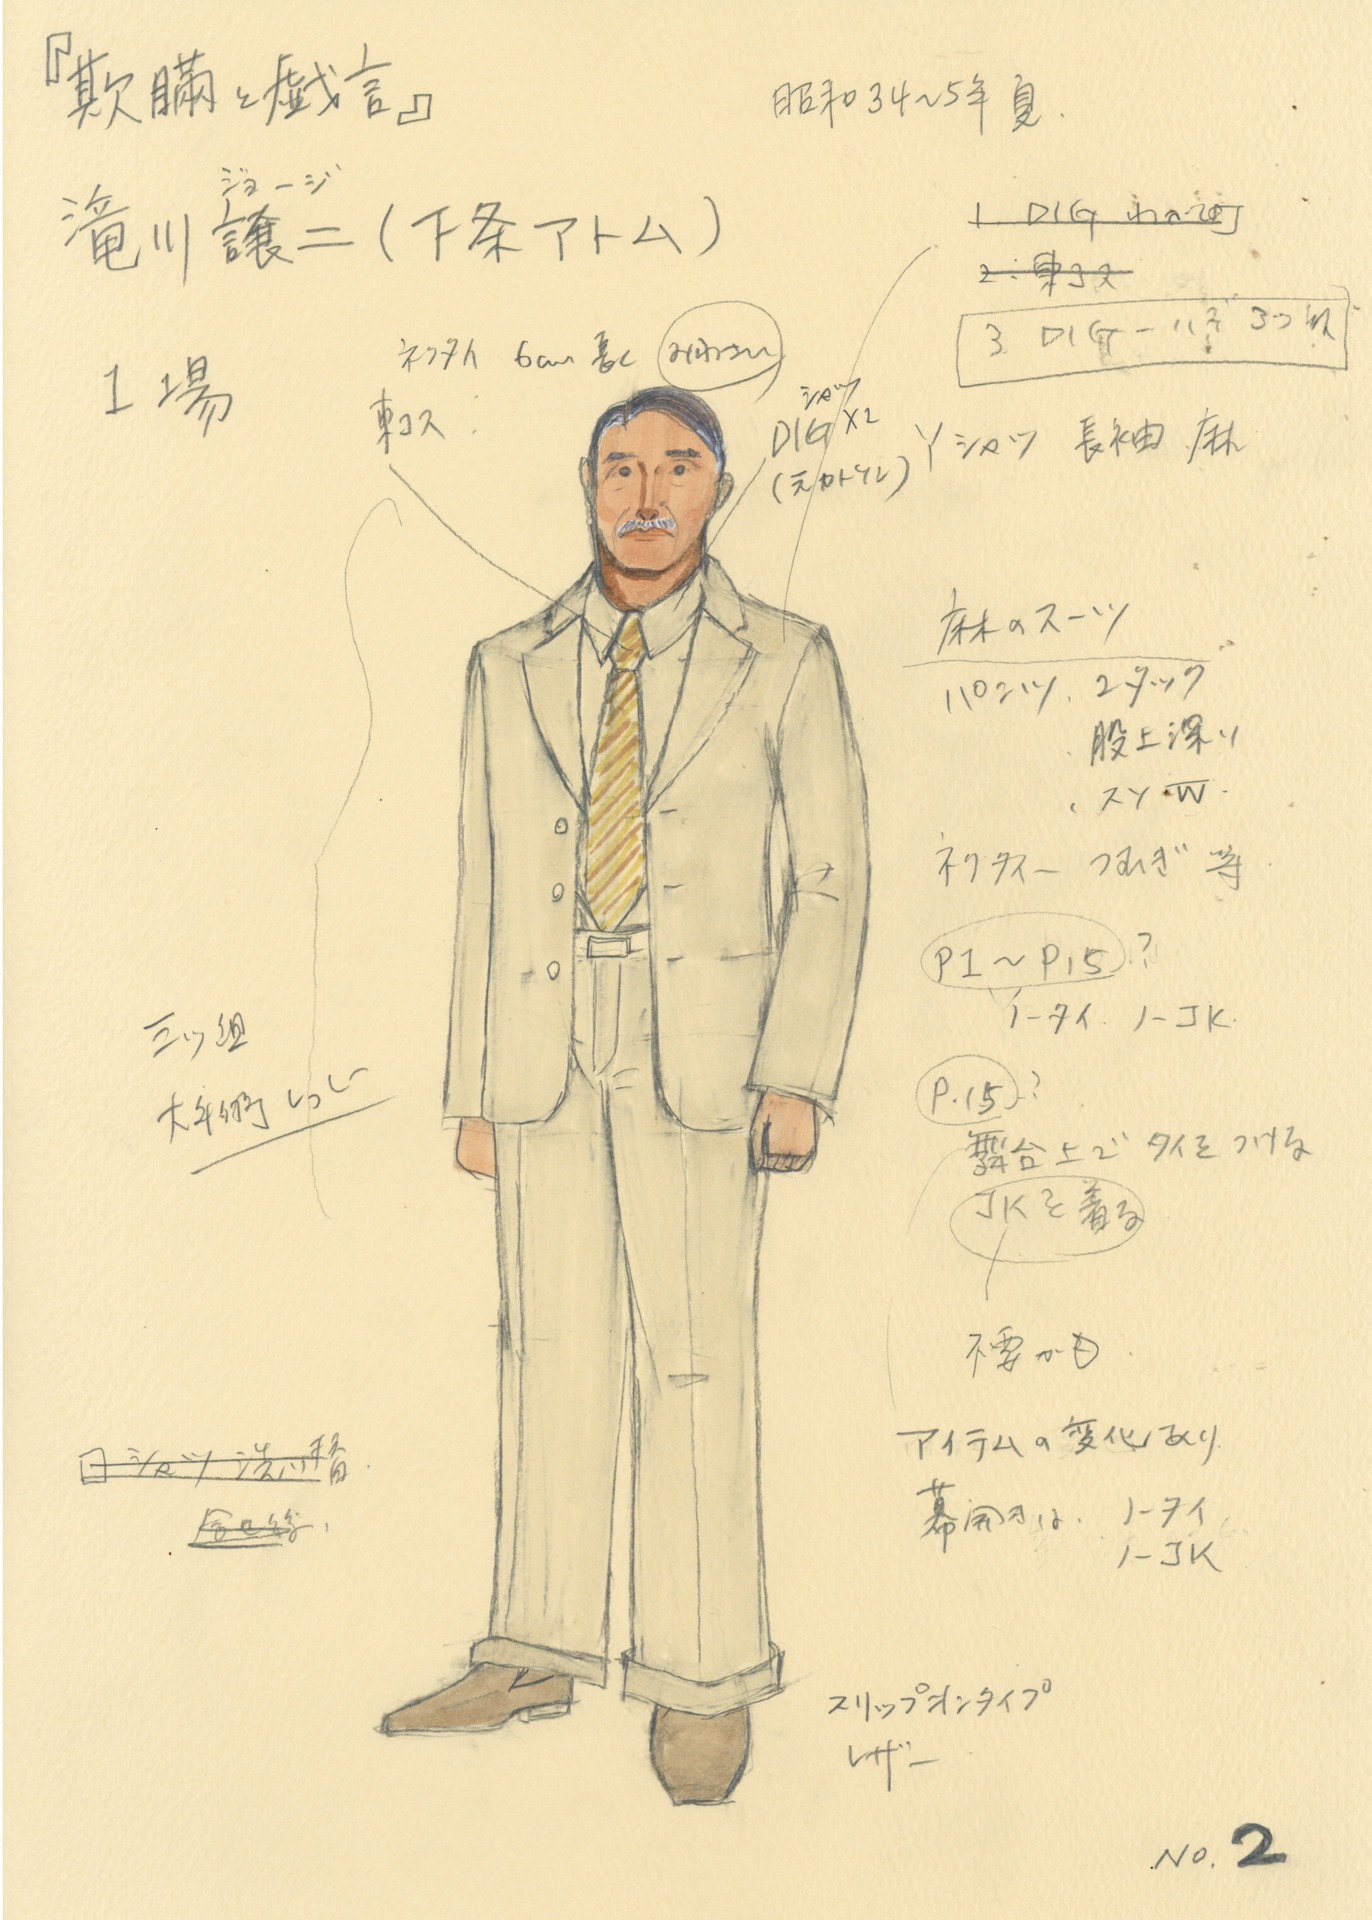 『欺瞞と戯言』
昭和34~5年 夏.
ジョージ
滝川 譲二(下条アトム)
1 DIG
2. 東コス
3. DIG
1場
ネクタイ 6cm 長く
東コス
シャツ
DIG X2
Yシャツ 長袖 麻
麻のスーツ
パンツ、2タック
・股上深い
、スソW.
ネクタイー つむぎ 等
P1~P15?
ノータイ. ノーJK.
三ツ組
P.15?
舞台上で タイをつける
JKを着る
不要かも.
アイテムの変化あり
幕開きは. ノータイ
ノーJK
シャツ 洗い替
スリップオンタイプ
レザー
NO. 2